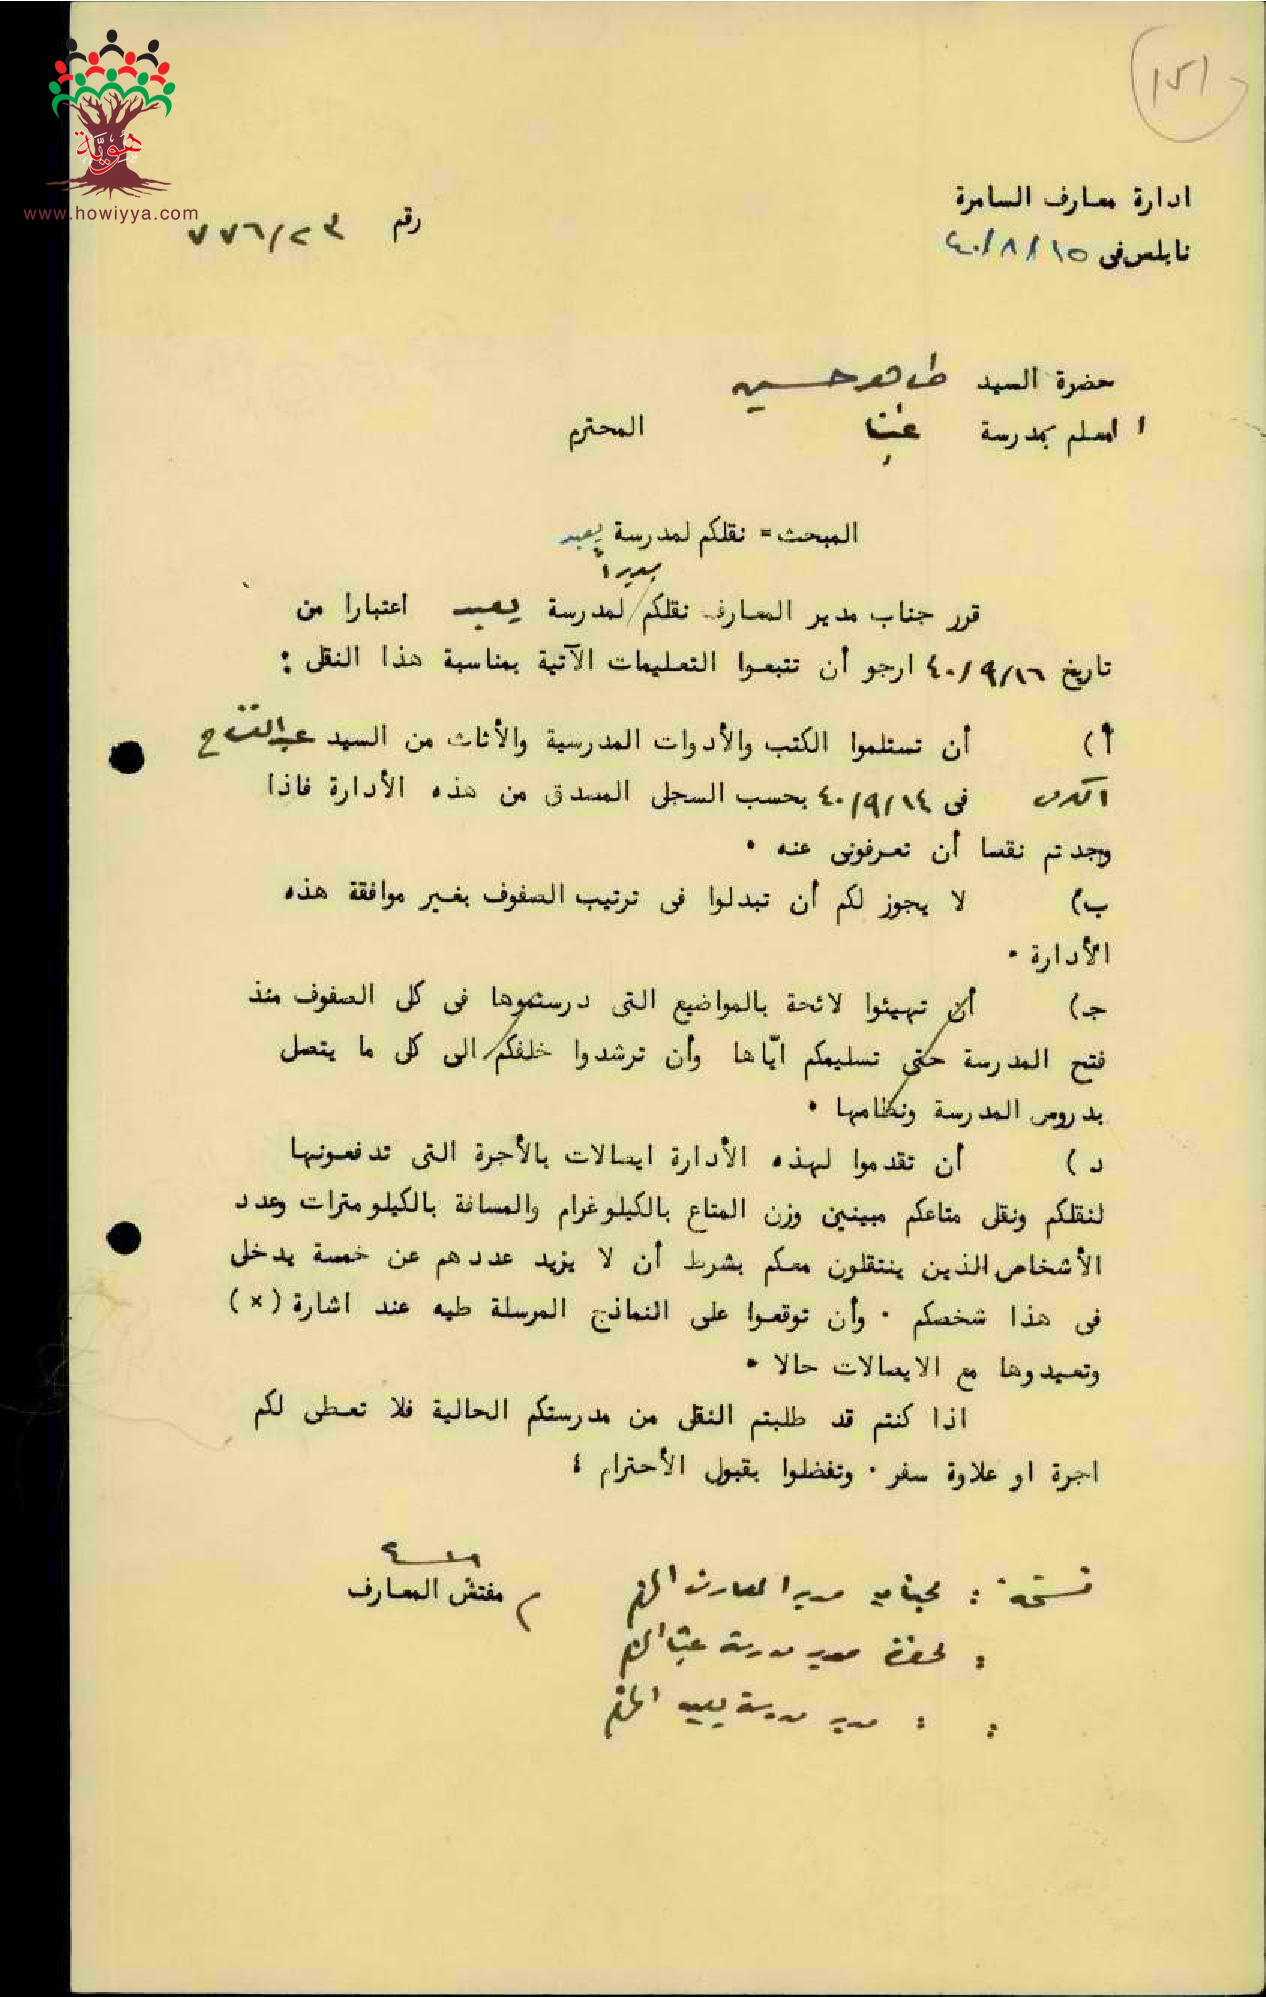 ١٥١
هويّة
www.howiyya.com
ادارة معارف السامرة
نابلس فى ١٥/٨/٤٠
رقم ٧٧٦/٢٣
حضرة السيد طاهر حسين
المعلم بمدرسة عنبتا المحترم
المبحث = نقلكم لمدرسة يعبد
مديرا
قرر جناب مدير المعارف نقلكم / لمدرسة يعبد اعتبارا من
تاريخ ١٦/٩/٤٠ ارجو أن تتبعوا التعليمات الآتية بمناسبة هذا النقل :
أ) أن تستلموا الكتب والأدوات المدرسية والأثاث من السيد عبد الفتاح
فى ١٤/٩/٤٠ بحسب السجل المصدق من هذه الأدارة فاذا
وجدتم نقصا أن تعرفونى عنه ٠
ب) لا يجوز لكم أن تبدلوا فى ترتيب الصفوف بغير موافقة هذه
الأدارة ٠
جـ) أن تهيئوا لائحة بالمواضيع التى درستموها فى كل الصفوف منذ
فتح المدرسة حتى تسليمكم ايّاها وأن ترشدوا خلفكم الى كل ما يتصل
بدروس المدرسة ونظامها ٠
د) أن تقدموا لهذه الأدارة ايصالات بالأجرة التى تدفعونها
لنقلكم ونقل متاعكم مبينين وزن المتاع بالكيلوغرام والمسافة بالكيلومترات وعدد
الأشخاص الذين ينتقلون معكم بشرط أن لا يزيد عددهم عن خمسة يدخل
فى هذا شخصكم ٠ وأن توقعوا على النماذج المرسلة طيه عند اشارة (×)
وتعيدوها مع الايصالات حالا ٠
اذا كنتم قد طلبتم النقل من مدرستكم الحالية فلا تعطى لكم
اجرة او علاوة سفر ٠ وتفضلوا بقبول الأحترام ؛
مفتش المعارف
نسخة : لجناب مدير المعارف المحترم
: لحضرة مدير مدرسة عنبتا المحترم
: : مدير مدرسة يعبد المحترم